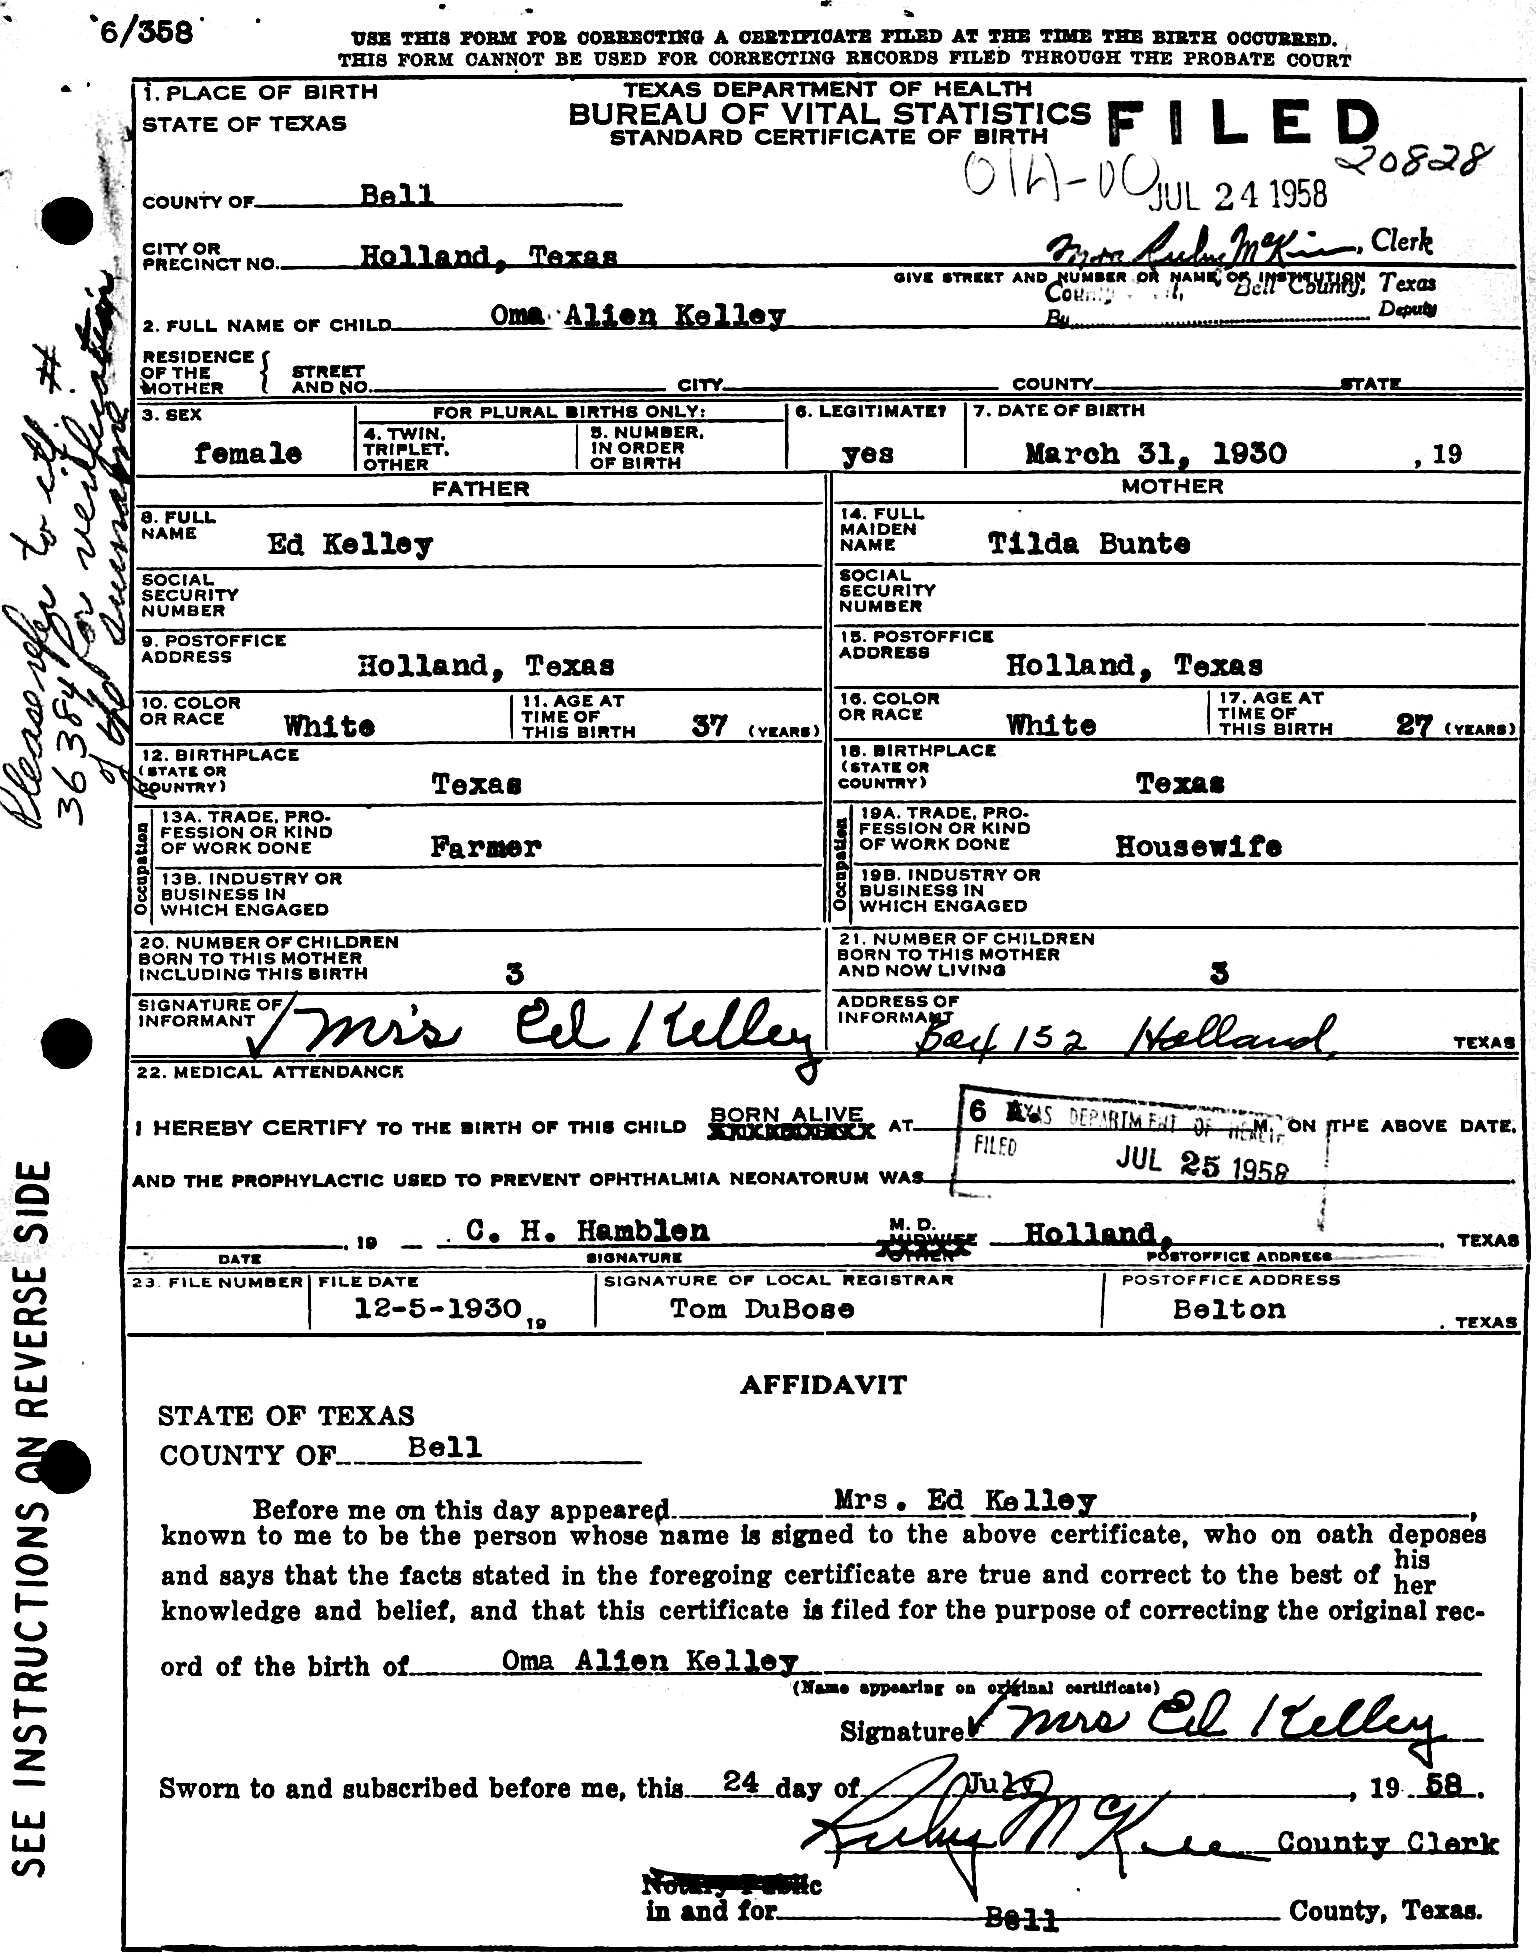 6/358
USE THIS FORM FOR CORRECTING A CERTIFICATE FILED AT THE TIME THE BIRTH OCCURRED.
THIS FORM CANNOT BE USED FOR CORRECTING RECORDS FILED THROUGH THE PROBATE COURT
1. PLACE OF BIRTH
STATE OF TEXAS
TEXAS DEPARTMENT OF HEALTH
BUREAU OF VITAL STATISTICS
STANDARD CERTIFICATE OF BIRTH
FILED
20828
JUL 24 1958
COUNTY OF Bell
CITY OR PRECINCT NO. Holland, Texas
Mrs Ruby McKee, Clerk
GIVE STREET AND NUMBER OR NAME OF INSTITUTION
County Bell County, Texas
By Deputy
2. FULL NAME OF CHILD Oma Alien Kelley
RESIDENCE OF THE MOTHER { STREET AND NO. CITY COUNTY STATE
3. SEX female
FOR PLURAL BIRTHS ONLY:
4. TWIN, TRIPLET, OTHER
5. NUMBER, IN ORDER OF BIRTH
6. LEGITIMATE? yes
7. DATE OF BIRTH March 31, 1930 , 19
FATHER
MOTHER
8. FULL NAME Ed Kelley
14. FULL MAIDEN NAME Tilda Bunte
SOCIAL SECURITY NUMBER
SOCIAL SECURITY NUMBER
9. POSTOFFICE ADDRESS Holland, Texas
15. POSTOFFICE ADDRESS Holland, Texas
10. COLOR OR RACE White
11. AGE AT TIME OF THIS BIRTH 37 (YEARS)
16. COLOR OR RACE White
17. AGE AT TIME OF THIS BIRTH 27 (YEARS)
12. BIRTHPLACE (STATE OR COUNTRY) Texas
18. BIRTHPLACE (STATE OR COUNTRY) Texas
Occupation
13A. TRADE, PROFESSION OR KIND OF WORK DONE Farmer
13B. INDUSTRY OR BUSINESS IN WHICH ENGAGED
Occupation
19A. TRADE, PROFESSION OR KIND OF WORK DONE Housewife
19B. INDUSTRY OR BUSINESS IN WHICH ENGAGED
20. NUMBER OF CHILDREN BORN TO THIS MOTHER INCLUDING THIS BIRTH 3
21. NUMBER OF CHILDREN BORN TO THIS MOTHER AND NOW LIVING 3
SIGNATURE OF INFORMANT Mrs Ed Kelley
ADDRESS OF INFORMANT Box 152 Holland, TEXAS
22. MEDICAL ATTENDANCE
I HEREBY CERTIFY TO THE BIRTH OF THIS CHILD BORN ALIVE AT 6 A. M. ON THE ABOVE DATE,
TEXAS DEPARTMENT OF HEALTH
FILED
JUL 25 1958
AND THE PROPHYLACTIC USED TO PREVENT OPHTHALMIA NEONATORUM WAS
, 19 C. H. Hamblen M. D. MIDWIFE OTHER Holland, , TEXAS
DATE SIGNATURE POSTOFFICE ADDRESS
23. FILE NUMBER
FILE DATE 12-5-1930, 19
SIGNATURE OF LOCAL REGISTRAR Tom DuBose
POSTOFFICE ADDRESS Belton , TEXAS
AFFIDAVIT
STATE OF TEXAS
COUNTY OF Bell
Before me on this day appeared Mrs. Ed Kelley ,
known to me to be the person whose name is signed to the above certificate, who on oath deposes
and says that the facts stated in the foregoing certificate are true and correct to the best of his her
knowledge and belief, and that this certificate is filed for the purpose of correcting the original rec-
ord of the birth of Oma Alien Kelley
(Name appearing on original certificate)
Signature Mrs Ed Kelley
Sworn to and subscribed before me, this 24 day of July , 19 58.
Ruby McKee County Clerk
Notary Public
in and for Bell County, Texas.
Please refer to ctf. #
36384 for verification
of
SEE INSTRUCTIONS ON REVERSE SIDE